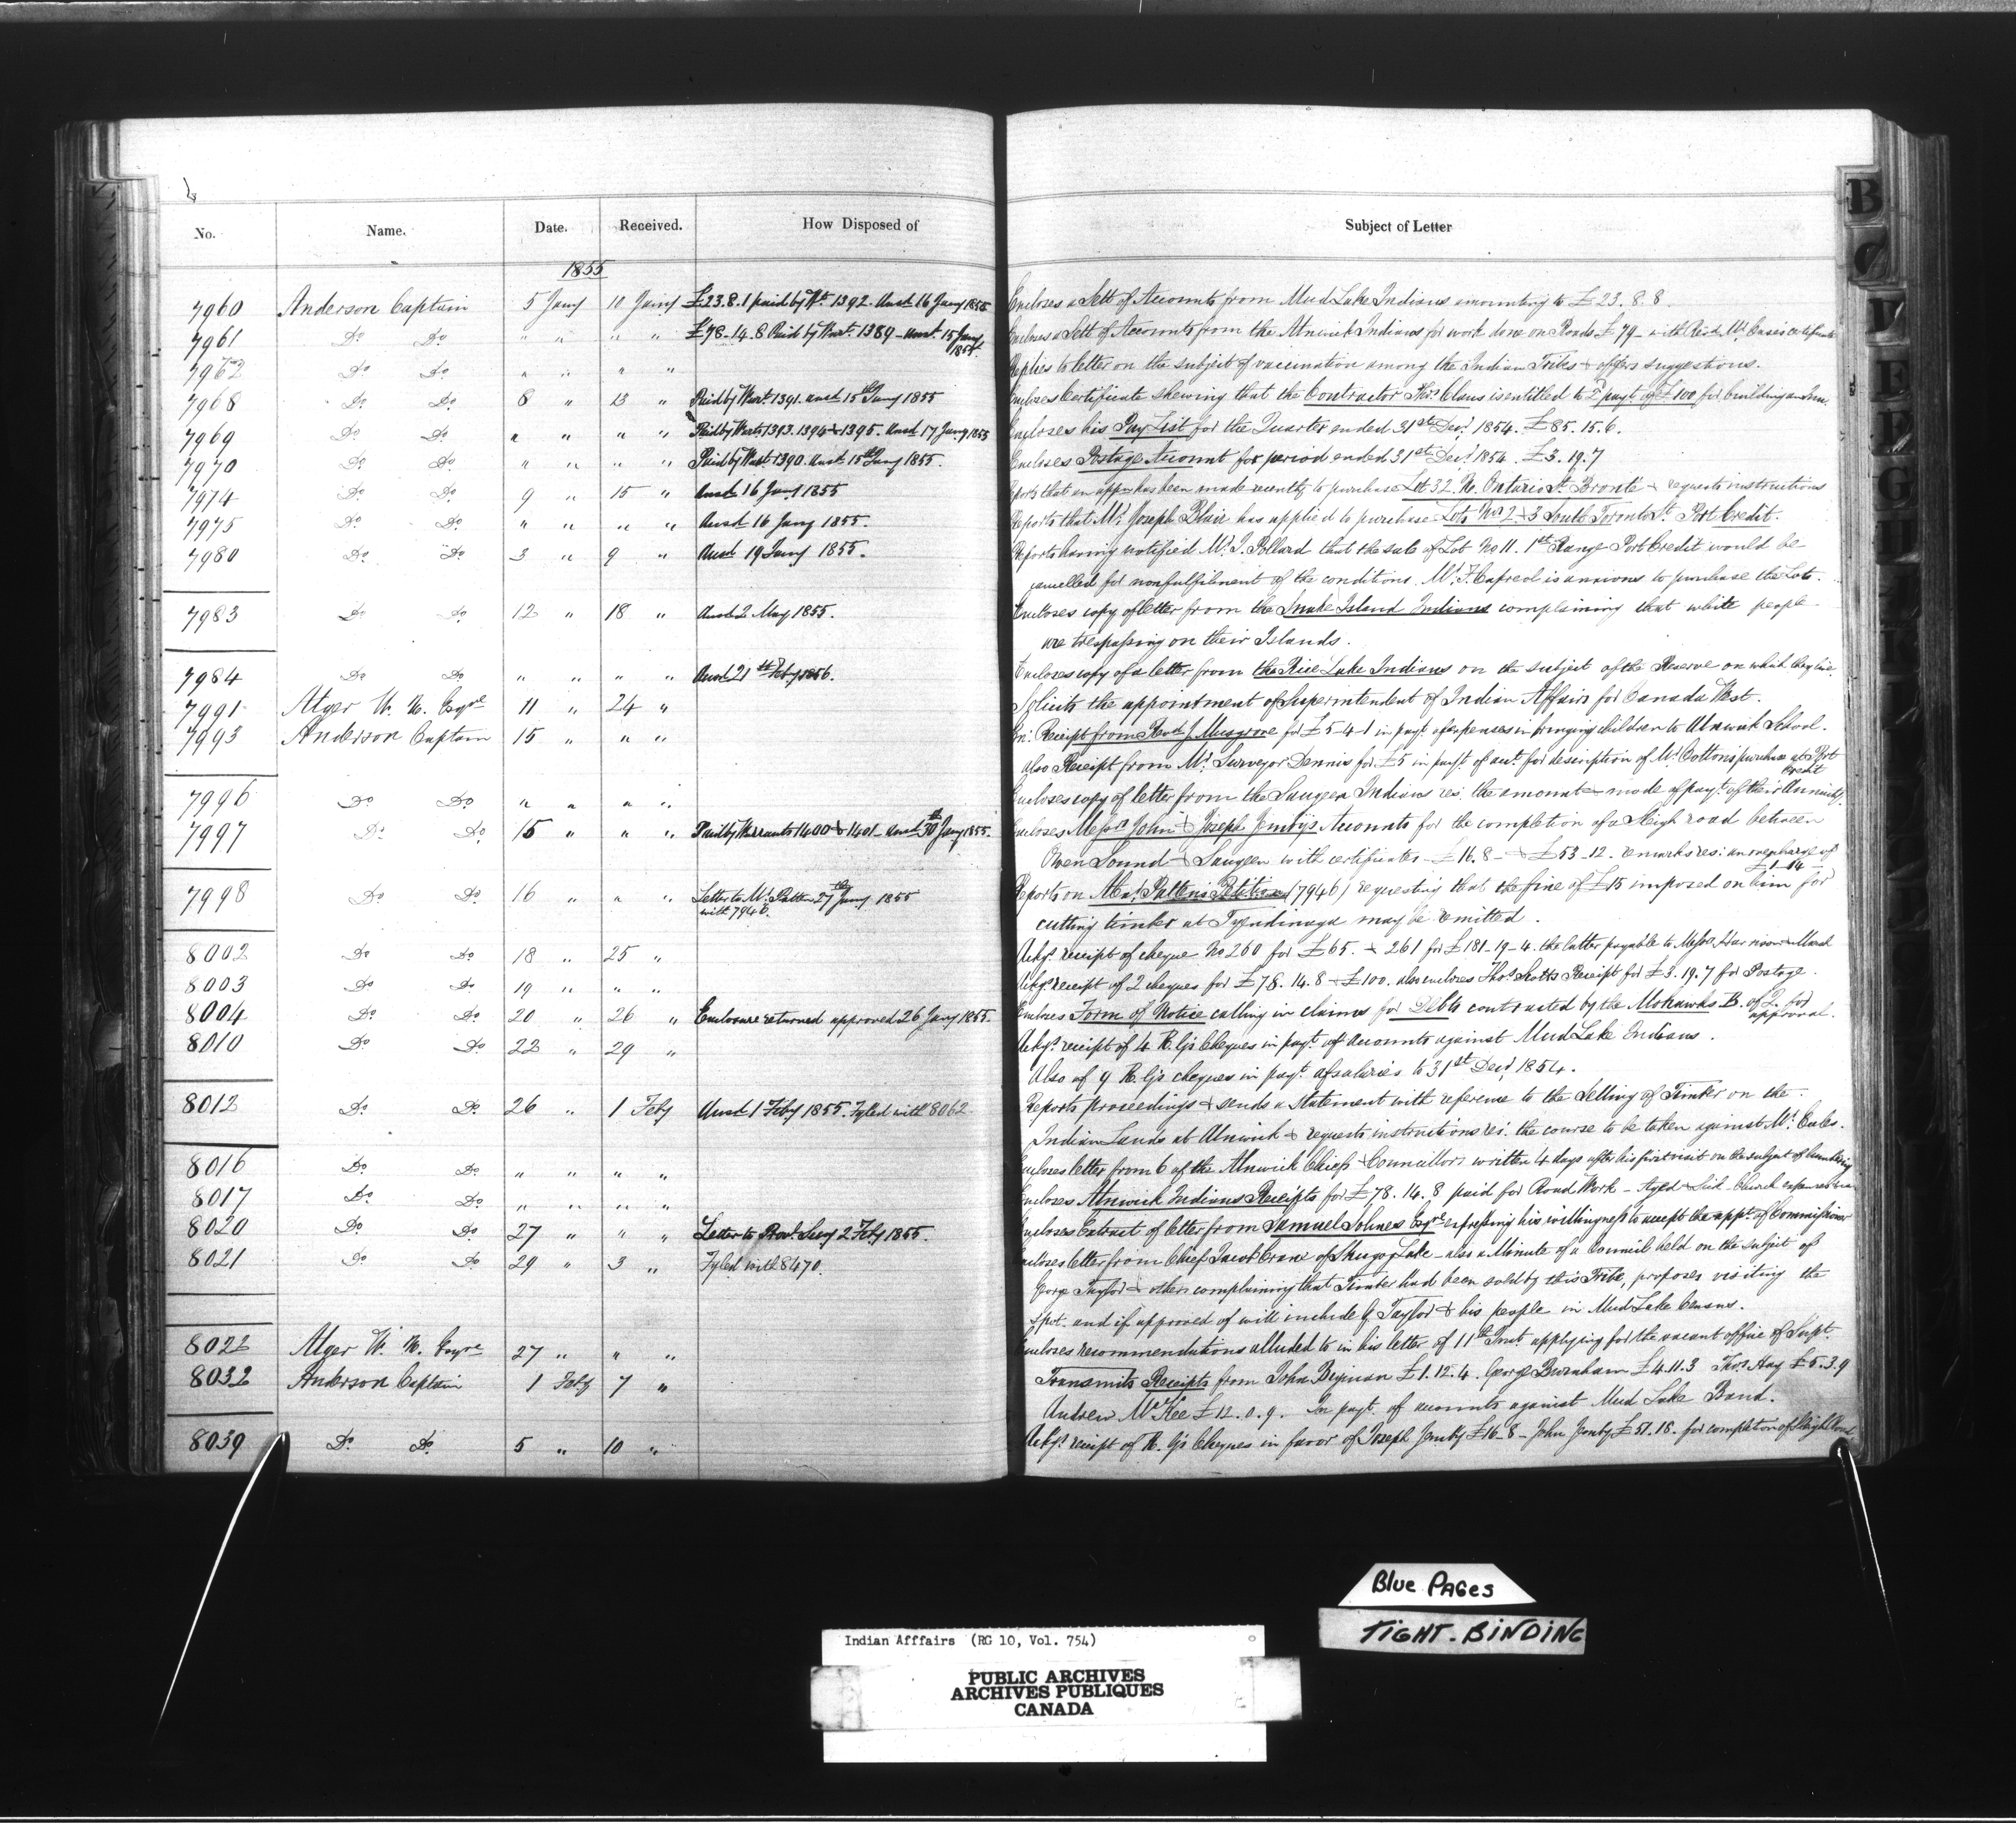 No. Name. Date. Received. How Disposed of Subject of Letter
1855
7960 Anderson Captain 5 Jany 10 Jany £23.8.1 paid by Wt 1392. Ansd 16 Jany 1855 Encloses a Sett of Accounts from Mud Lake Indians amounting to £23.8.8.
7961 Do Do " " " " £78-14.8 Paid by Wart. 1389 - Ansd 15 Jany 1855. Encloses a Sett of Accounts from the Alnwick Indians for work done on Roads £79 - with Revd Mr. Case's certificate
7962 Do Do " " " " Replies to letter on the subject of vaccination among the Indian Tribes & offers suggestions.
7968 Do Do 8 " 13 " Paid by Wart. 1391. ansd 15th Jany 1855 Encloses Certificate shewing that the Contractor Thos. Claus is entitled to 2d payt of £100 for building an
7969 Do Do " " " " Paid by Warts 1393. 1394 & 1395. Ansd 17 Jany 1855 Encloses his Pay List for the Quarter ended 31st Decr. 1854. £85.15.6.
7970 Do Do " " " " Paid by Wart 1390. ansd 15th Jany 1855. Encloses Postage Account for period ended 31st Decr. 1854. £3.19.7
7974 Do Do 9 " 15 " Ansd 16 Jany 1855 Reports that an appn has been made recently to purchase Lot 32. N. Ontario St. Bronté & requests instructions
7975 Do Do " " " " Ansd 16 Jany 1855. Reports that Mr. Joseph Blair has applied to purchase Lots Nos 2 & 3 South Toronto St. Port Credit.
7980 Do Do 3 " 9 " Ansd 19 Jany 1855. Reports having notified Mr. J. Pollard that the sale of Lot No 11. 1st Range Port Credit would be
cancelled for nonfulfilment of the conditions. Mr. F. Capreol is anxious to purchase the Lots.
7983 Do Do 12 " 18 " Ansd 2 May 1855. Encloses copy of letter from the Snake Island Indians complaining that white people
are trespassing on their Islands.
7984 Do Do " " " " Ansd 21st Feby 1856. Encloses copy of a letter from the Rice Lake Indians on the subject of the Reserve on which they live.
7991 Alger W. N. Esqre 11 " 24 " Solicits the appointment of Superintendent of Indian Affairs for Canada West.
7993 Anderson Captain 15 " " " En: Receipt from Revd J. Musgrove for £5-4-1 in payt of expenses in bringing children to Alnwick School.
also Receipt from Mr. Surveyor Dennis for £5 in payt. of act. for description of Mr Cotton's purchase at Port Credit
7996 Do Do " " " " Encloses copy of letter from the Saugeen Indians res: the amount & mode of payt. of their Annuity.
7997 Do Do 15 " " " Paid by Warrants 1400 & 1401 - Ansd 30th Jany 1855. Encloses Messrs John & Joseph Jemby's Accounts for the completion of a Sleigh road between
Owen Sound & Saugeen with certificates - £16.8 - & £53-12. remarks res: an overcharge of £1-14
7998 Do Do 16 " " " Letter to Mr. Patten 27th Jany 1855 with 7946. Reports on Patten's Petition (7946) requesting that the fine of £15 imposed on him for
cutting timber at Tyendinaga may be remitted.
8002 Do Do 18 " 25 " Ackgs receipt of cheque No 260 for £65. & 261 for £181-19-4. the latter payable to Messrs
8003 Do Do 19 " " " Ackgs receipt of 2 cheques for £78.14.8 & £100. also encloses Thos. Scott's Receipt for £3.19.7 for Postage.
8004 Do Do 20 " 26 " Enclosure returned approved 26 Jany 1855. Encloses Form of Notice calling in claims for Debts contracted by the Mohawks B. of Q. for approval.
8010 Do Do 22 " 29 " Ackgs receipt of 4 R. G's Cheques in payt. of accounts against Mud Lake Indians.
Also of 4 R. G's cheques in payt. of salaries to 31st Decr 1854.
8012 Do Do 26 " 1 Feby Ansd 1 Feby 1855. Fyled with 8062 Reports proceedings & sends a statement with reference to the Selling of Timber on the
Indian Lands at Alnwick & requests instructions res: the course to be taken against Mr.
8016 Do Do " " " " Encloses letter from 6 of the Alnwick Chiefs & Councillors written 4 days after his first visit on the subject of
8017 Do Do " " " " Encloses Alnwick Indians Receipts for £78.14.8 paid for Road Work - Aged & Sick - Church expenses
8020 Do Do 27 " " " Letter to Provl. Secy 2 Feby 1855. Encloses Extract of letter from Samuel Sohnes Esqre expressing his willingness to accept the appt. of Commissioner
8021 Do Do 29 " 3 " Fyled with 8470. Encloses letter from Chief Jacob Crane of Shugog Lake - also a Minute of a Council held on the subject of
George Taylor & others complaining that Timber had been sold by this Tribe, proposes visiting the
spot. and if approved of will include G Taylor & his people in Mud Lake Census.
8022 Alger W. N. Esqre 27 " " " Encloses recommendations alluded to in his letter of 11th Inst. applying for the vacant office of Supt.
8032 Anderson Captain 1 Feby 7 " Transmits Receipts from John £1.12.4. George Burnham £4.11.3 Thos. Hay £5.3.9
Andrew McKee £12.0.9. In payt. of accounts against Mud Lake Band.
8039 Do Do 5 " 10 " Ackgs receipt of R. G's Cheques in favor of Joseph Jemby £16-8 - John Jemby £51.18. for completion of Sleigh Road
B
C
D
E
F
G
Blue Pages
TIGHT-BINDING
Indian Afffairs (RG 10, Vol. 754)
PUBLIC ARCHIVES
ARCHIVES PUBLIQUES
CANADA